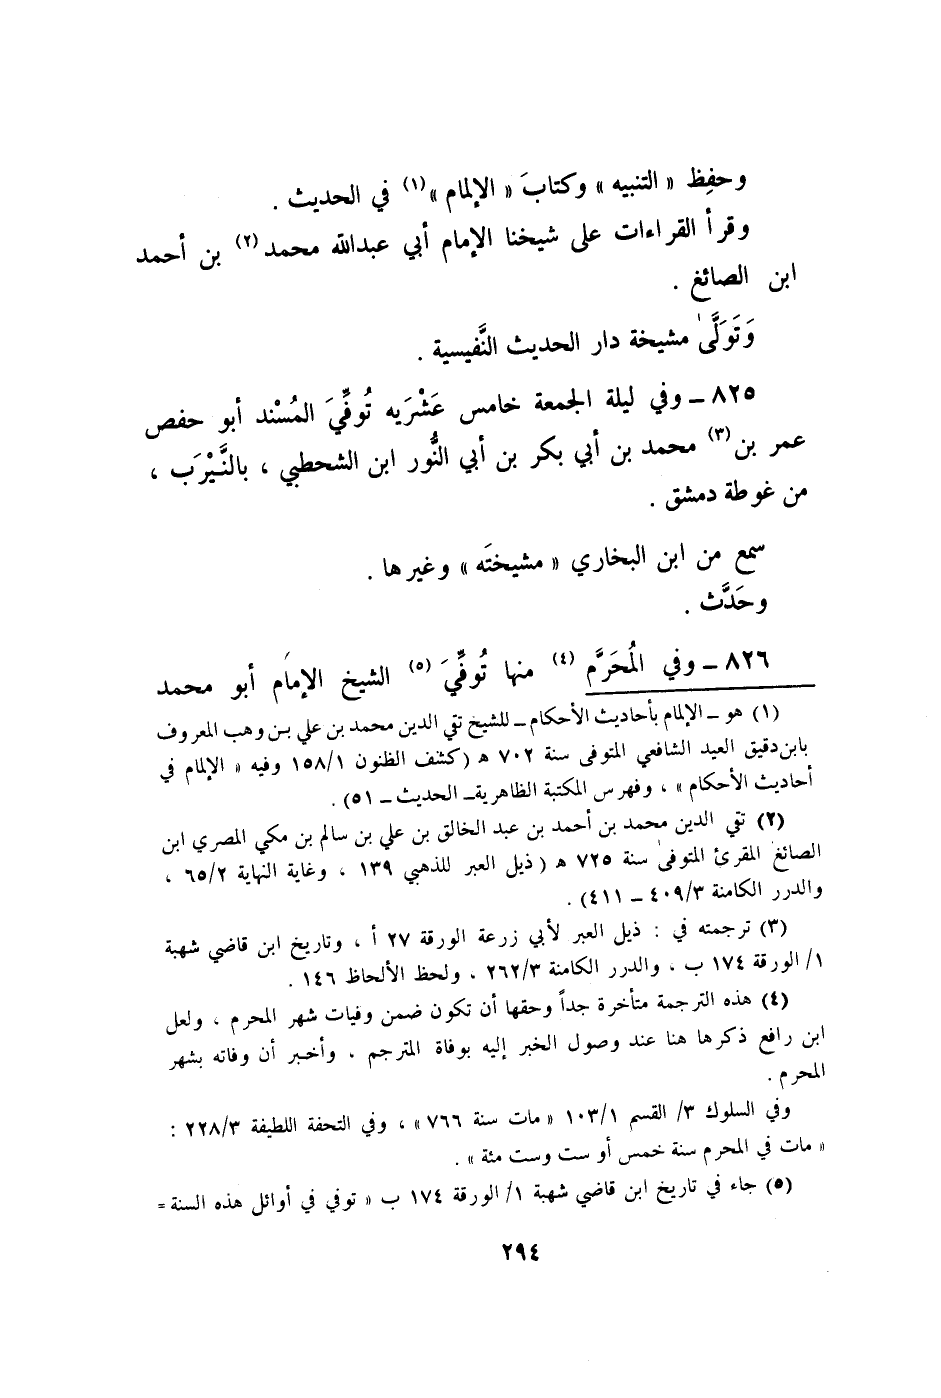 وحفِظ « التنبيه » وكتابَ « الإلمام »(١) في الحديث .
وقرأ القراءات على شيخنا الإمام أبي عبدالله محمد(٢) بن أحمد
ابن الصائغ .
وَتَوَلَّىٰ مشيخة دار الحديث النَّفيسية .
٨٢٥ ـ وفي ليلة الجمعة خامس عَشْرَيه تُوفِّيَ المُسْند أبو حفص
عمر بن(٣) محمد بن أبي بكر بن أبي النُّور ابن الشحطبي ، بالنَّيْرَب ،
من غوطة دمشق .
سمع من ابن البخاري « مشيختَه » وغيرها .
وحَدَّث .
٨٢٦ ـ وفي المُحَرَّم (٤) منها تُوفِّيَ (٥) الشيخ الإمام أبو محمد
(١) هو ـ الإلمام بأحاديث الأحكام ـ للشيخ تقي الدين محمد بن علي بن وهب المعروف
بابن دقيق العيد الشافعي المتوفى سنة ٧٠٢ هـ (كشف الظنون ١٥٨/١ وفيه « الإلمام في
أحاديث الأحكام » ، وفهرس المكتبة الظاهرية ـ الحديث ـ ٥١) .
(٢) تقي الدين محمد بن أحمد بن عبد الخالق بن علي بن سالم بن مكي المصري ابن
الصائغ المقرئ المتوفى سنة ٧٢٥ هـ ( ذيل العبر للذهبي ١٣٩ ، وغاية النهاية ٦٥/٢ ،
والدرر الكامنة ٤٠٩/٣ ـ ٤١١) .
(٣) ترجمته في : ذيل العبر لأبي زرعة الورقة ٢٧ أ ، وتاريخ ابن قاضي شهبة
١/ الورقة ١٧٤ ب ، والدرر الكامنة ٢٦٢/٣ ، ولحظ الألحاظ ١٤٦ .
(٤) هذه الترجمة متأخرة جداً وحقها أن تكون ضمن وفيات شهر المحرم ، ولعل
ابن رافع ذكرها هنا عند وصول الخبر إليه بوفاة المترجم ، وأخبر أن وفاته بشهر
المحرم .
وفي السلوك ٣/ القسم ١٠٣/١ « مات سنة ٧٦٦ » ، وفي التحفة اللطيفة ٢٢٨/٣ :
« مات في المحرم سنة خمس أو ست وست مئة » .
(٥) جاء في تاريخ ابن قاضي شهبة ١/ الورقة ١٧٤ ب « توفي في أوائل هذه السنة =
٢٩٤